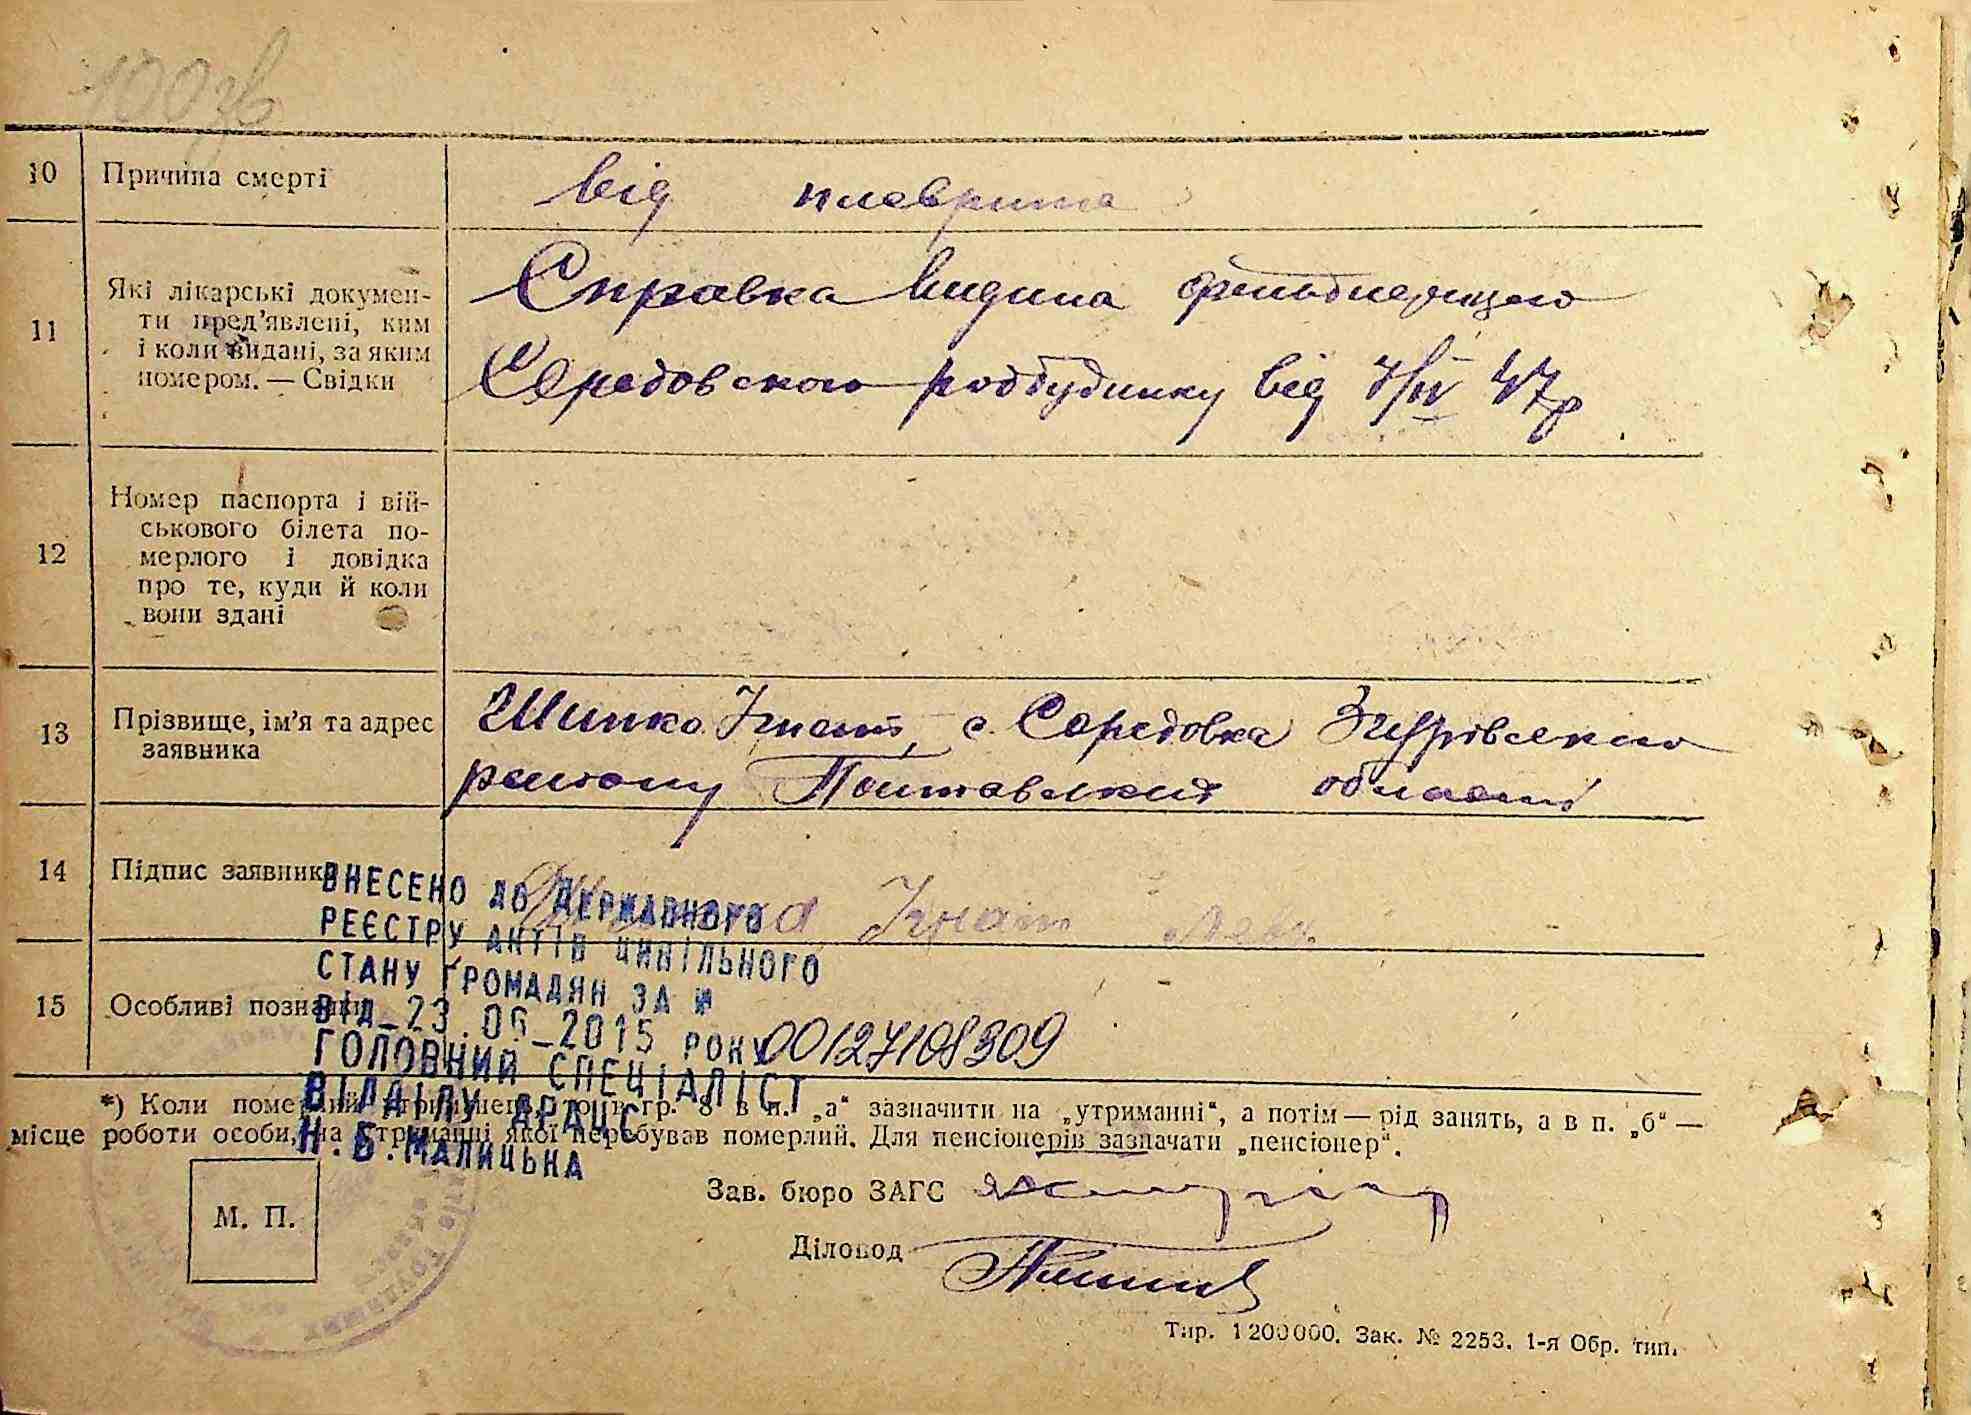 100зв
10 Причина смерті
від плеврита
11 Які лікарські докумен-
ти пред'явлені, ким
і коли видані, за яким
номером. — Свідки
Справка видина фельдшерицею
Середовского родбудинку від 7/IV 47р
12 Номер паспорта і вій-
ськового білета по-
мерлого і довідка
про те, куди й коли
вони здані
13 Прізвище, ім'я та адрес
заявника
Шипко Ігнат, с. Середовка Згурівського
району Полтавської області
14 Підпис заявника
Ігнат
15 Особливі познаки
ВНЕСЕНО ДО ДЕРЖАВНОГО
РЕЄСТРУ АКТІВ ЦИВІЛЬНОГО
СТАНУ ГРОМАДЯН ЗА №
ВІД_23.06_2015 РОКУ 00127108309
ГОЛОВНИЙ СПЕЦІАЛІСТ
ВІДДІЛУ ДРАЦС
Н.Б.МАЛИЦЬКА
*) Коли померлий утриманець, то в гр. 8 в п. „а“ зазначити на „утриманні“, а потім — рід занять, а в п. „б“ —
місце роботи особи, на утриманні якої перебував померлий. Для пенсіонерів зазначати „пенсіонер“.
М. П.
Зав. бюро ЗАГС
Діловод
Тир. 1200000. Зак. № 2253. 1-я Обр. тип.